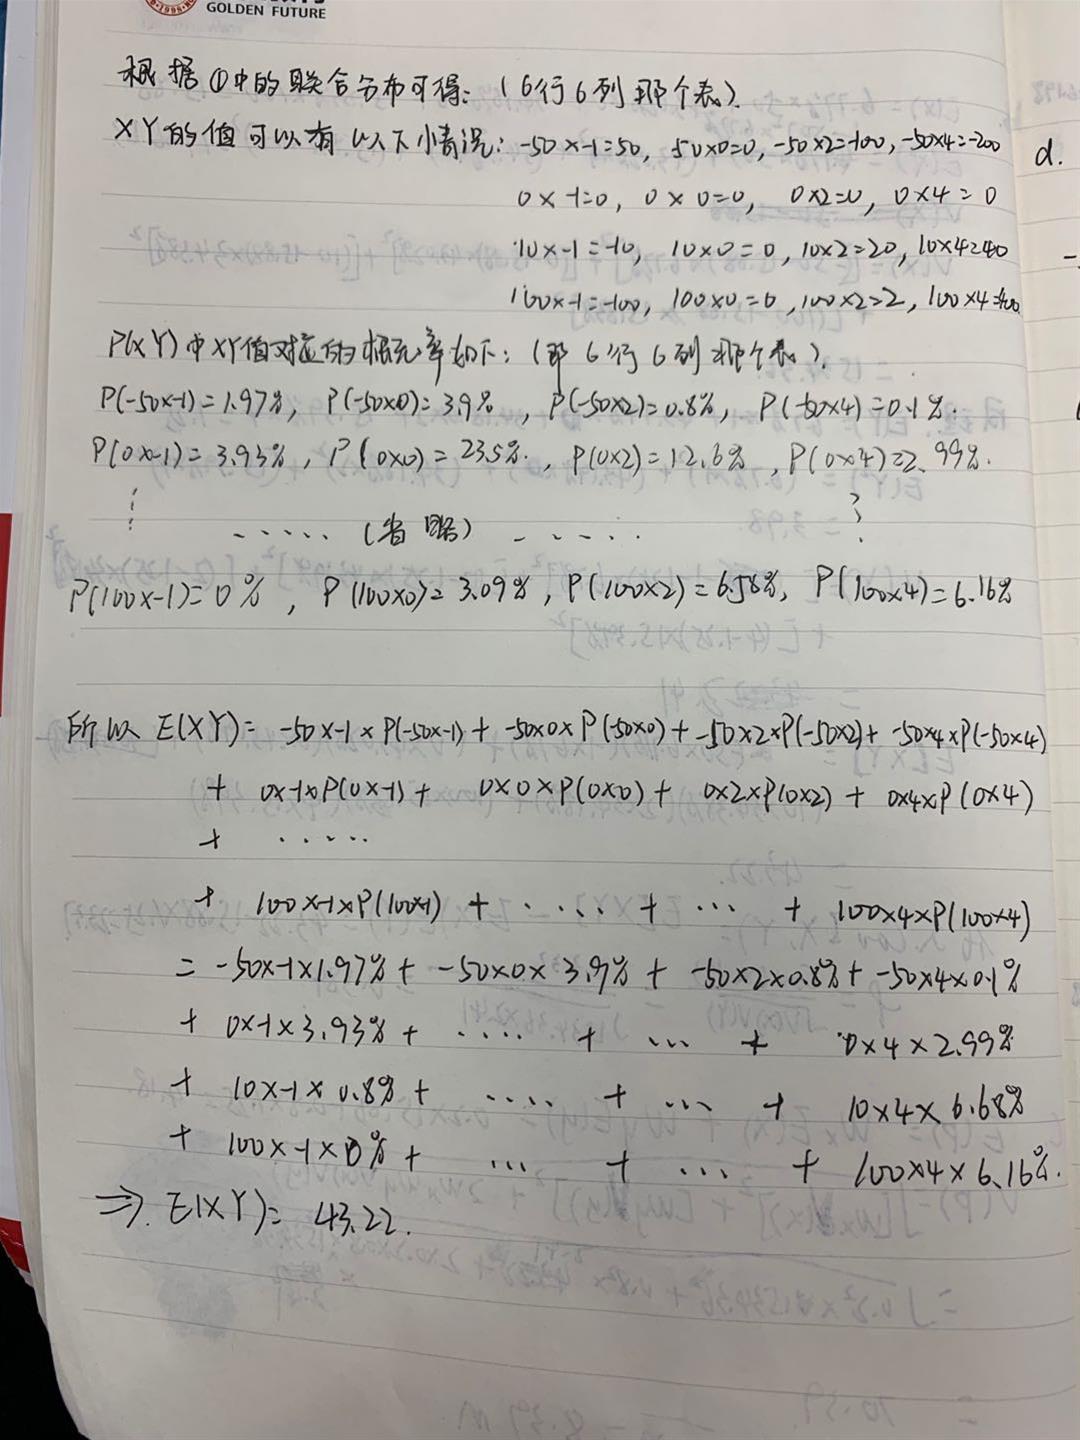 GOLDEN FUTURE
根据①中的联合分布可得:(6行6列那个表).
XY的值可以有以下情况: -50×-1=50, 50×0=0, -50×2=-100, -50×4=-200
0×-1=0, 0×0=0, 0×2=0, 0×4=0
10×-1=-10, 10×0=0, 10×2=20, 10×4=40
100×-1=-100, 100×0=0, 100×2=2, 100×4=400
P(XY)中XY值对应的概率如下:(即6行6列那个表).
P(-50×-1)=1.97%, P(-50×0)=3.9%, P(-50×2)=0.8%, P(-50×4)=0.1%.
P(0×-1)=3.93%, P(0×0)=23.5%., P(0×2)=12.6%, P(0×4)=2.99%.
.....(省略).....
P(100×-1)=0%, P(100×0)=3.09%, P(100×2)=6.58%, P(100×4)=6.16%
所以 E(XY)= -50×-1×P(-50×-1)+ -50×0×P(-50×0)+ -50×2×P(-50×2)+ -50×4×P(-50×4)
+ 0×-1×P(0×-1)+ 0×0×P(0×0)+ 0×2×P(0×2)+ 0×4×P(0×4)
+ .....
+ 100×-1×P(100×-1) + .... + ... + 100×4×P(100×4)
= -50×-1×1.97%+ -50×0×3.9%+ -50×2×0.8%+ -50×4×0.1%
+ 0×-1×3.93%+ .... + ... + 0×4×2.99%
+ 10×-1×0.8%+ .... + ... + 10×4×6.68%
+ 100×-1×0%+ ... + ... + 100×4×6.16%.
⇒. E(XY)= 43.22.
d.